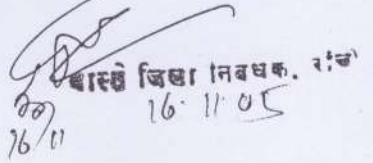 वास्ते जिला निबंधक. राँची
16.11.05
16/11